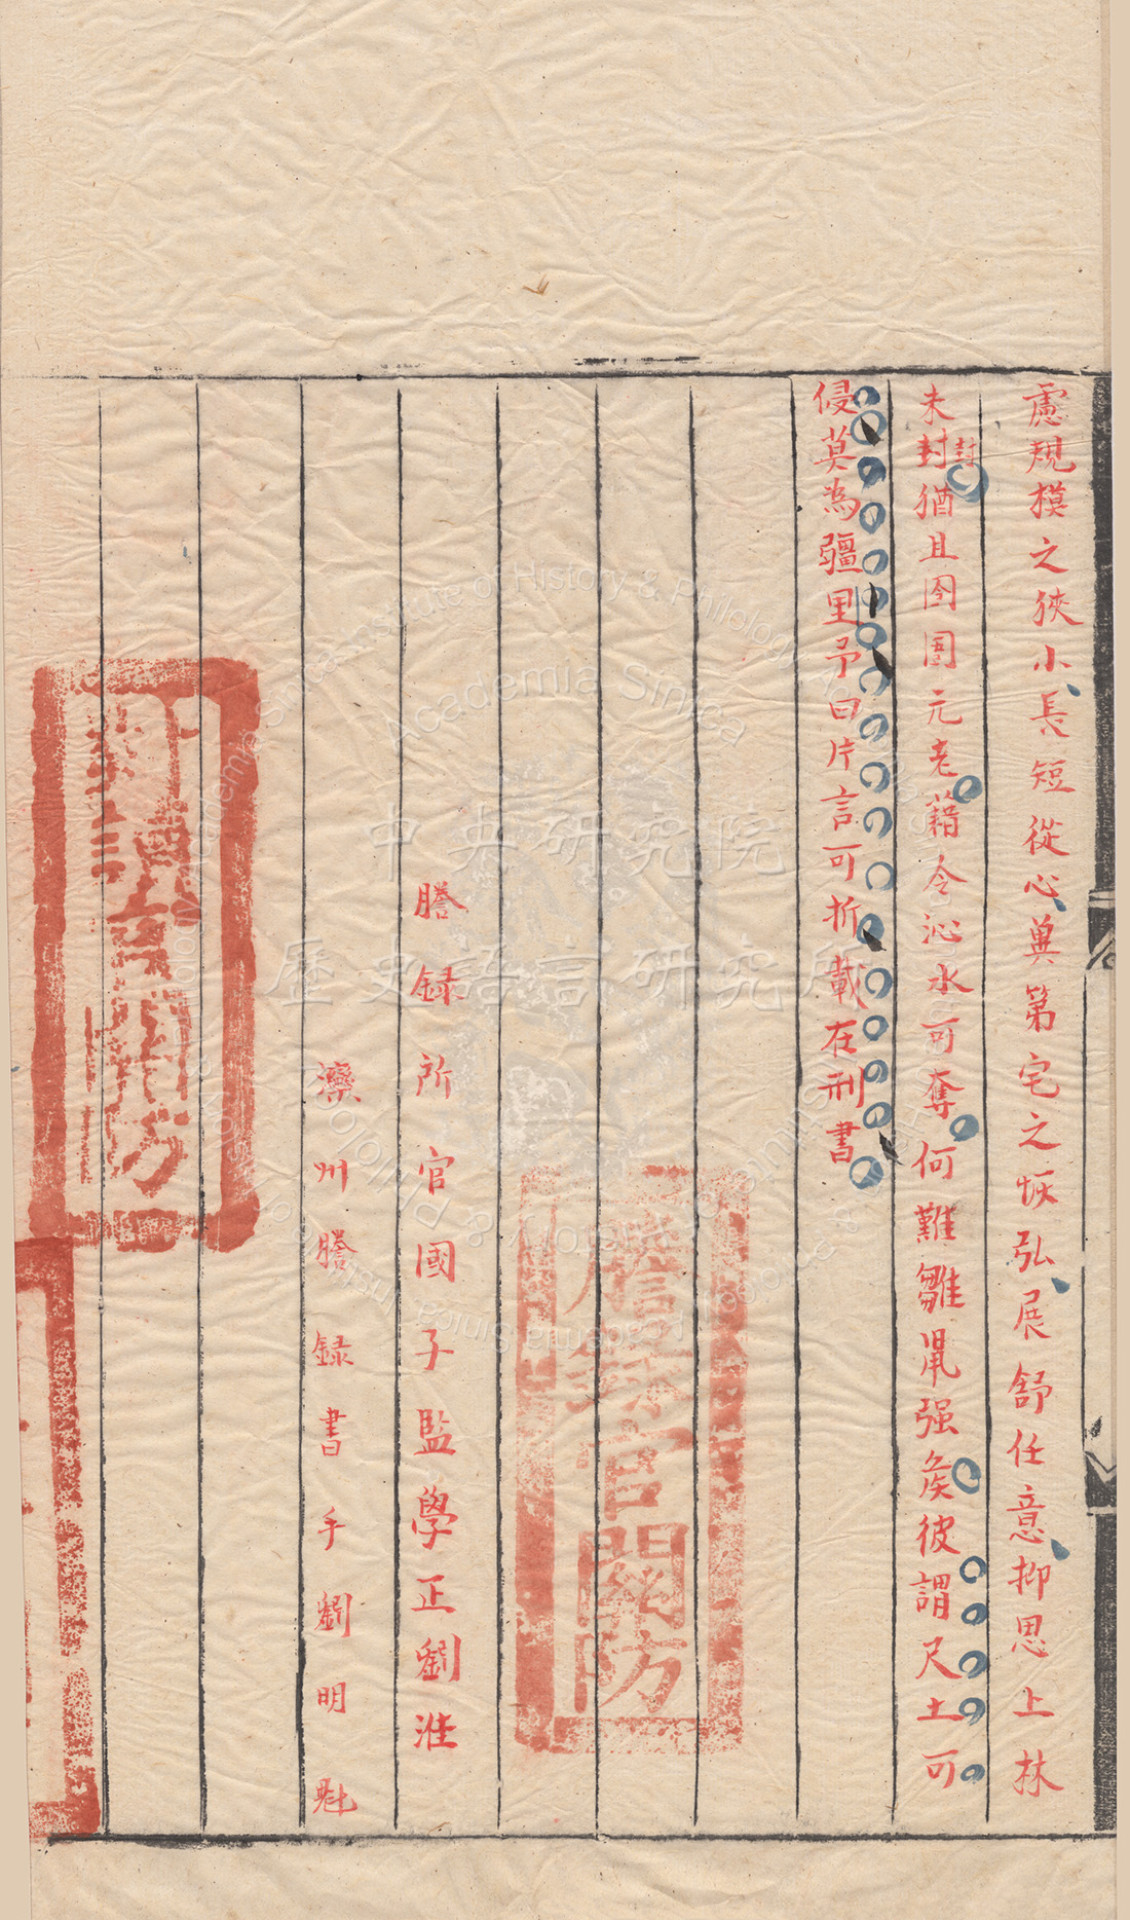 慮規模之狹小長短從心奠第宅之恢弘展舒任意抑思上林
未封猶且圈圄元老藉令沁水可奪何難雛鼠强矦彼謂尺土可
封
侵莫為疆里予曰片言可折載在刑書
謄錄官關防
謄録所官國子監學正劉淮
灤州謄録書手劉明魁
對讀官關防
中央研究院
歷史語言研究所